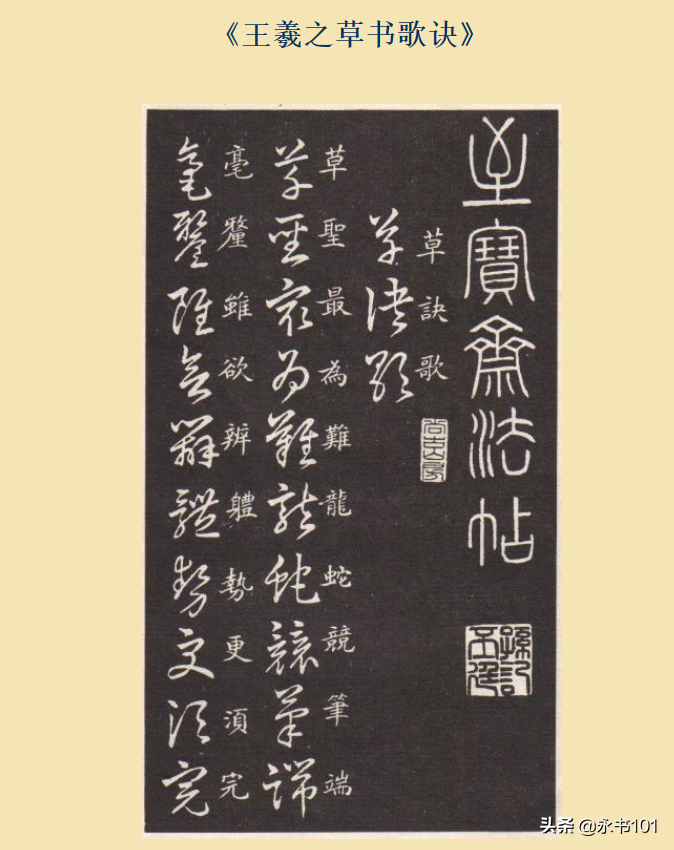 《王羲之草书歌诀》
至寶齋法帖
草訣歌
草訣歌
草聖最為難龍蛇競筆端
草聖最為難龍蛇競筆端
毫釐雖欲辨軆勢更湏完
毫釐雖欲辨體勢更須完
头条 @永书101